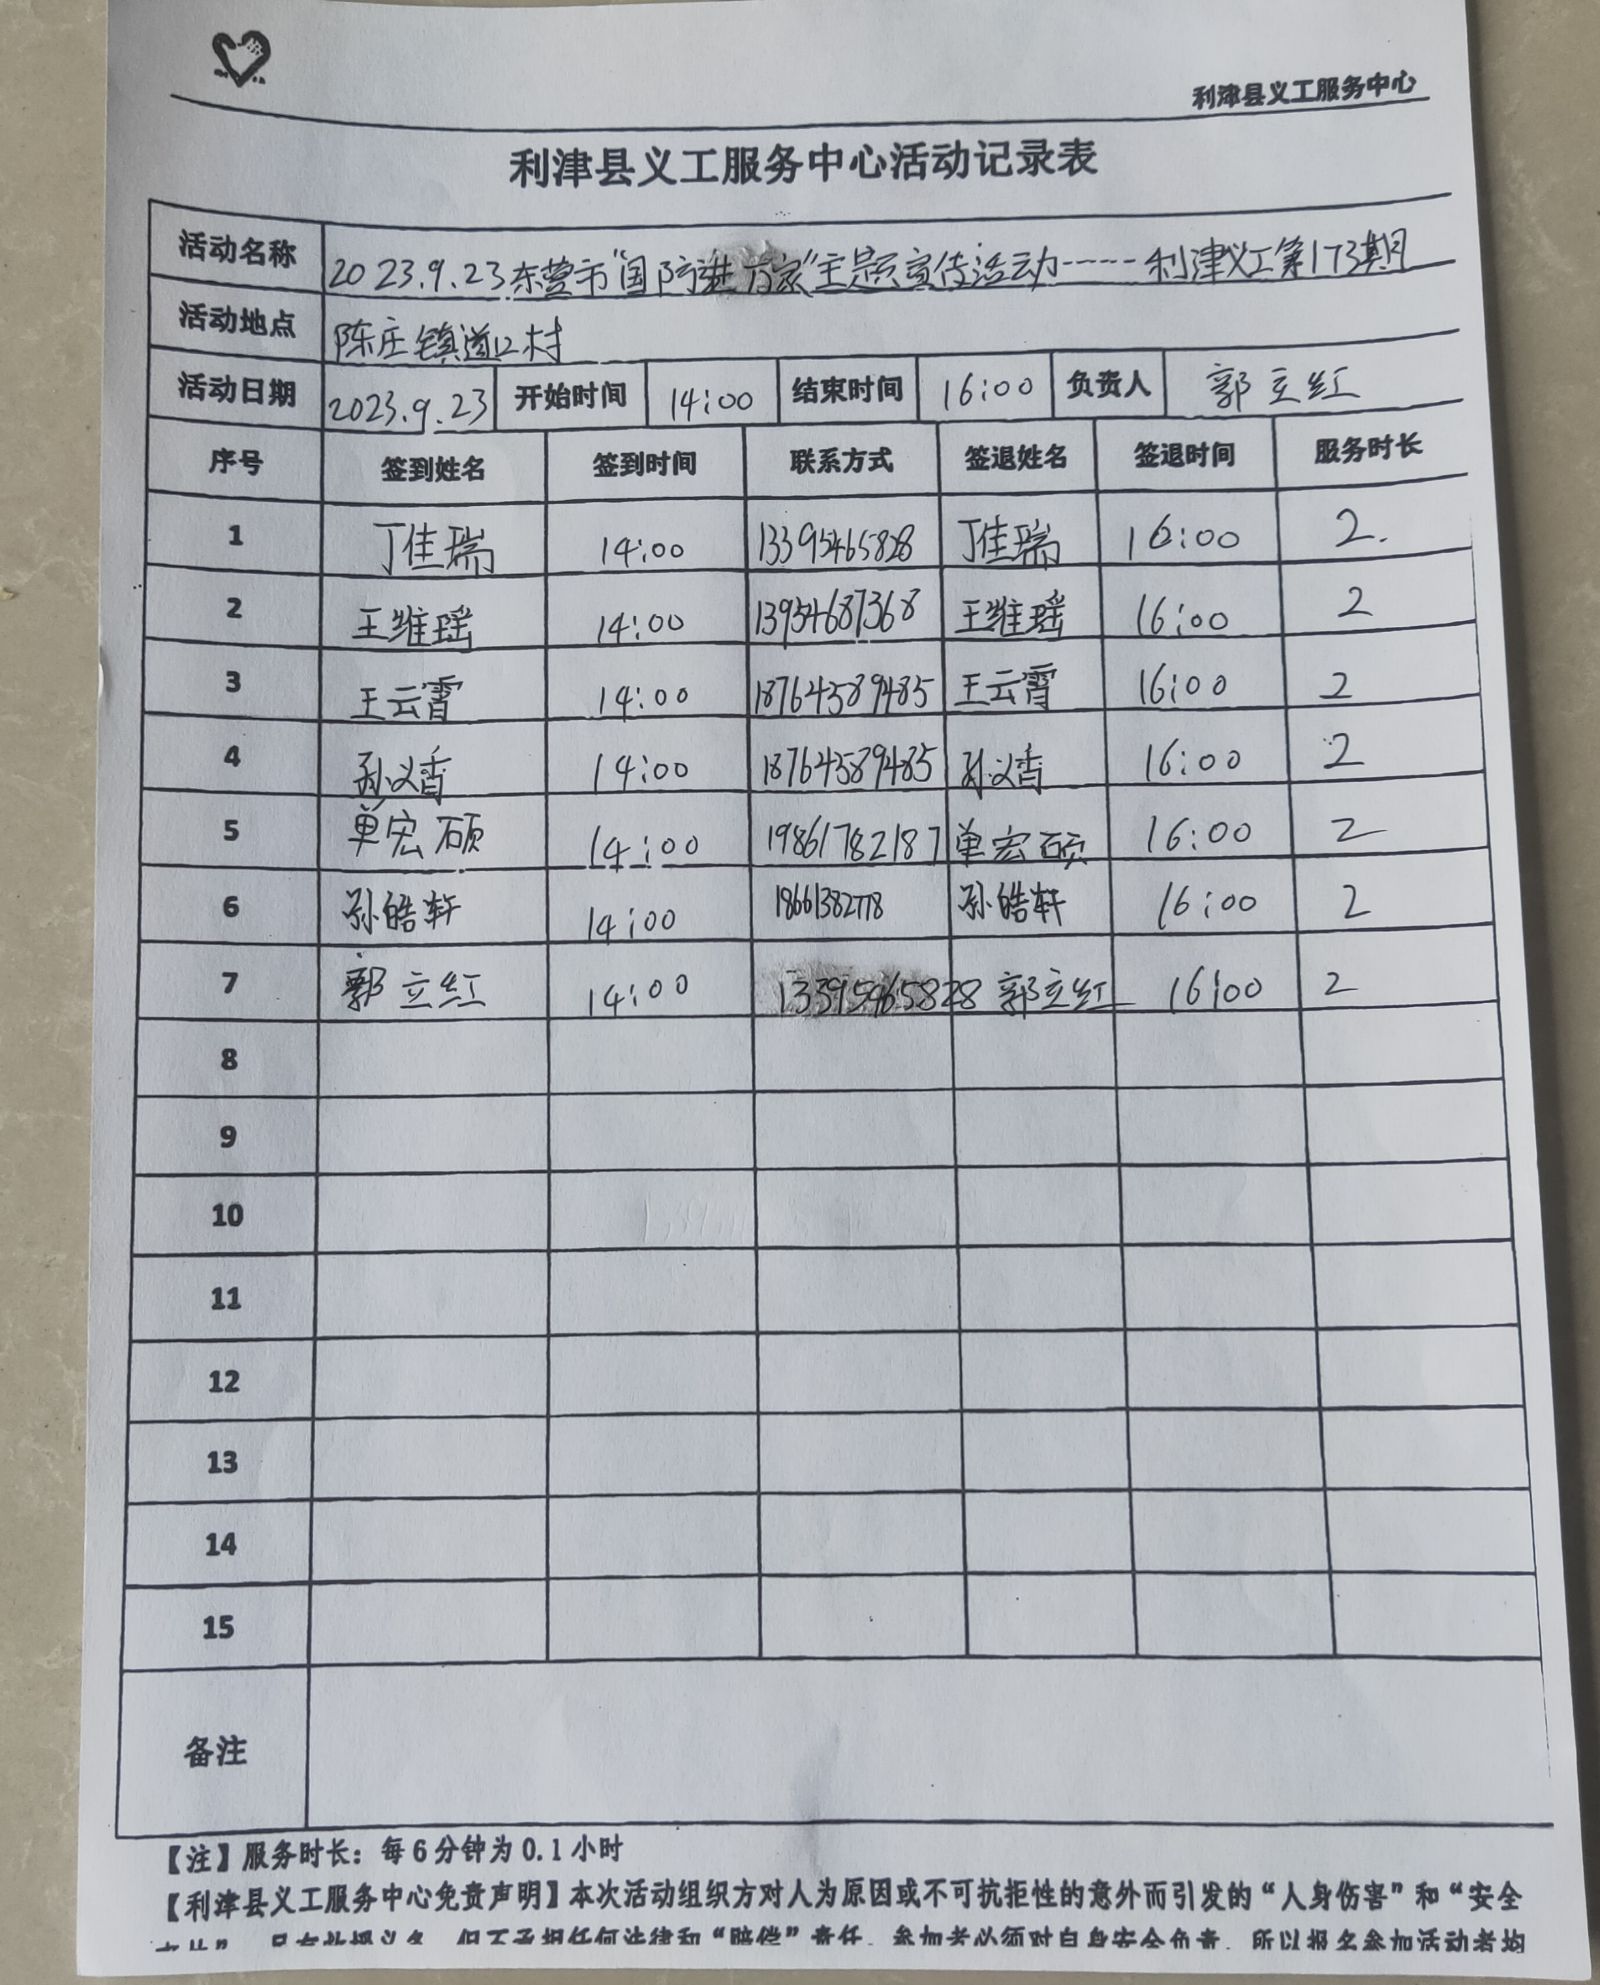 利津县义工服务中心
利津县义工服务中心活动记录表
活动名称 2023.9.23东营市"国防进万家"主题宣传活动-----利津义工第173期
活动地点 陈庄镇道口村
活动日期 2023.9.23 开始时间 14:00 结束时间 16:00 负责人 郭立红
序号 签到姓名 签到时间 联系方式 签退姓名 签退时间 服务时长
1 丁佳瑞 14:00 13395465828 丁佳瑞 16:00 2.
2 王维瑶 14:00 13954687368 王维瑶 16:00 2
3 王云霄 14:00 18764589485 王云霄 16:00 2
4 孙义香 14:00 18764589485 孙义香 16:00 2
5 单宏硕 14:00 19861782187 单宏硕 16:00 2
6 孙皓轩 14:00 孙皓轩 16:00 2
7 郭立红 14:00 郭立红 16:00 2
8
9
10
11
12
13
14
15
备注
【注】服务时长：每6分钟为0.1小时
【利津县义工服务中心免责声明】本次活动组织方对人为原因或不可抗拒性的意外而引发的“人身伤害”和“安全
只有救援义务，但不承担任何法律和“赔偿”责任，参加者必须对自身安全负责，所以报名参加活动者均